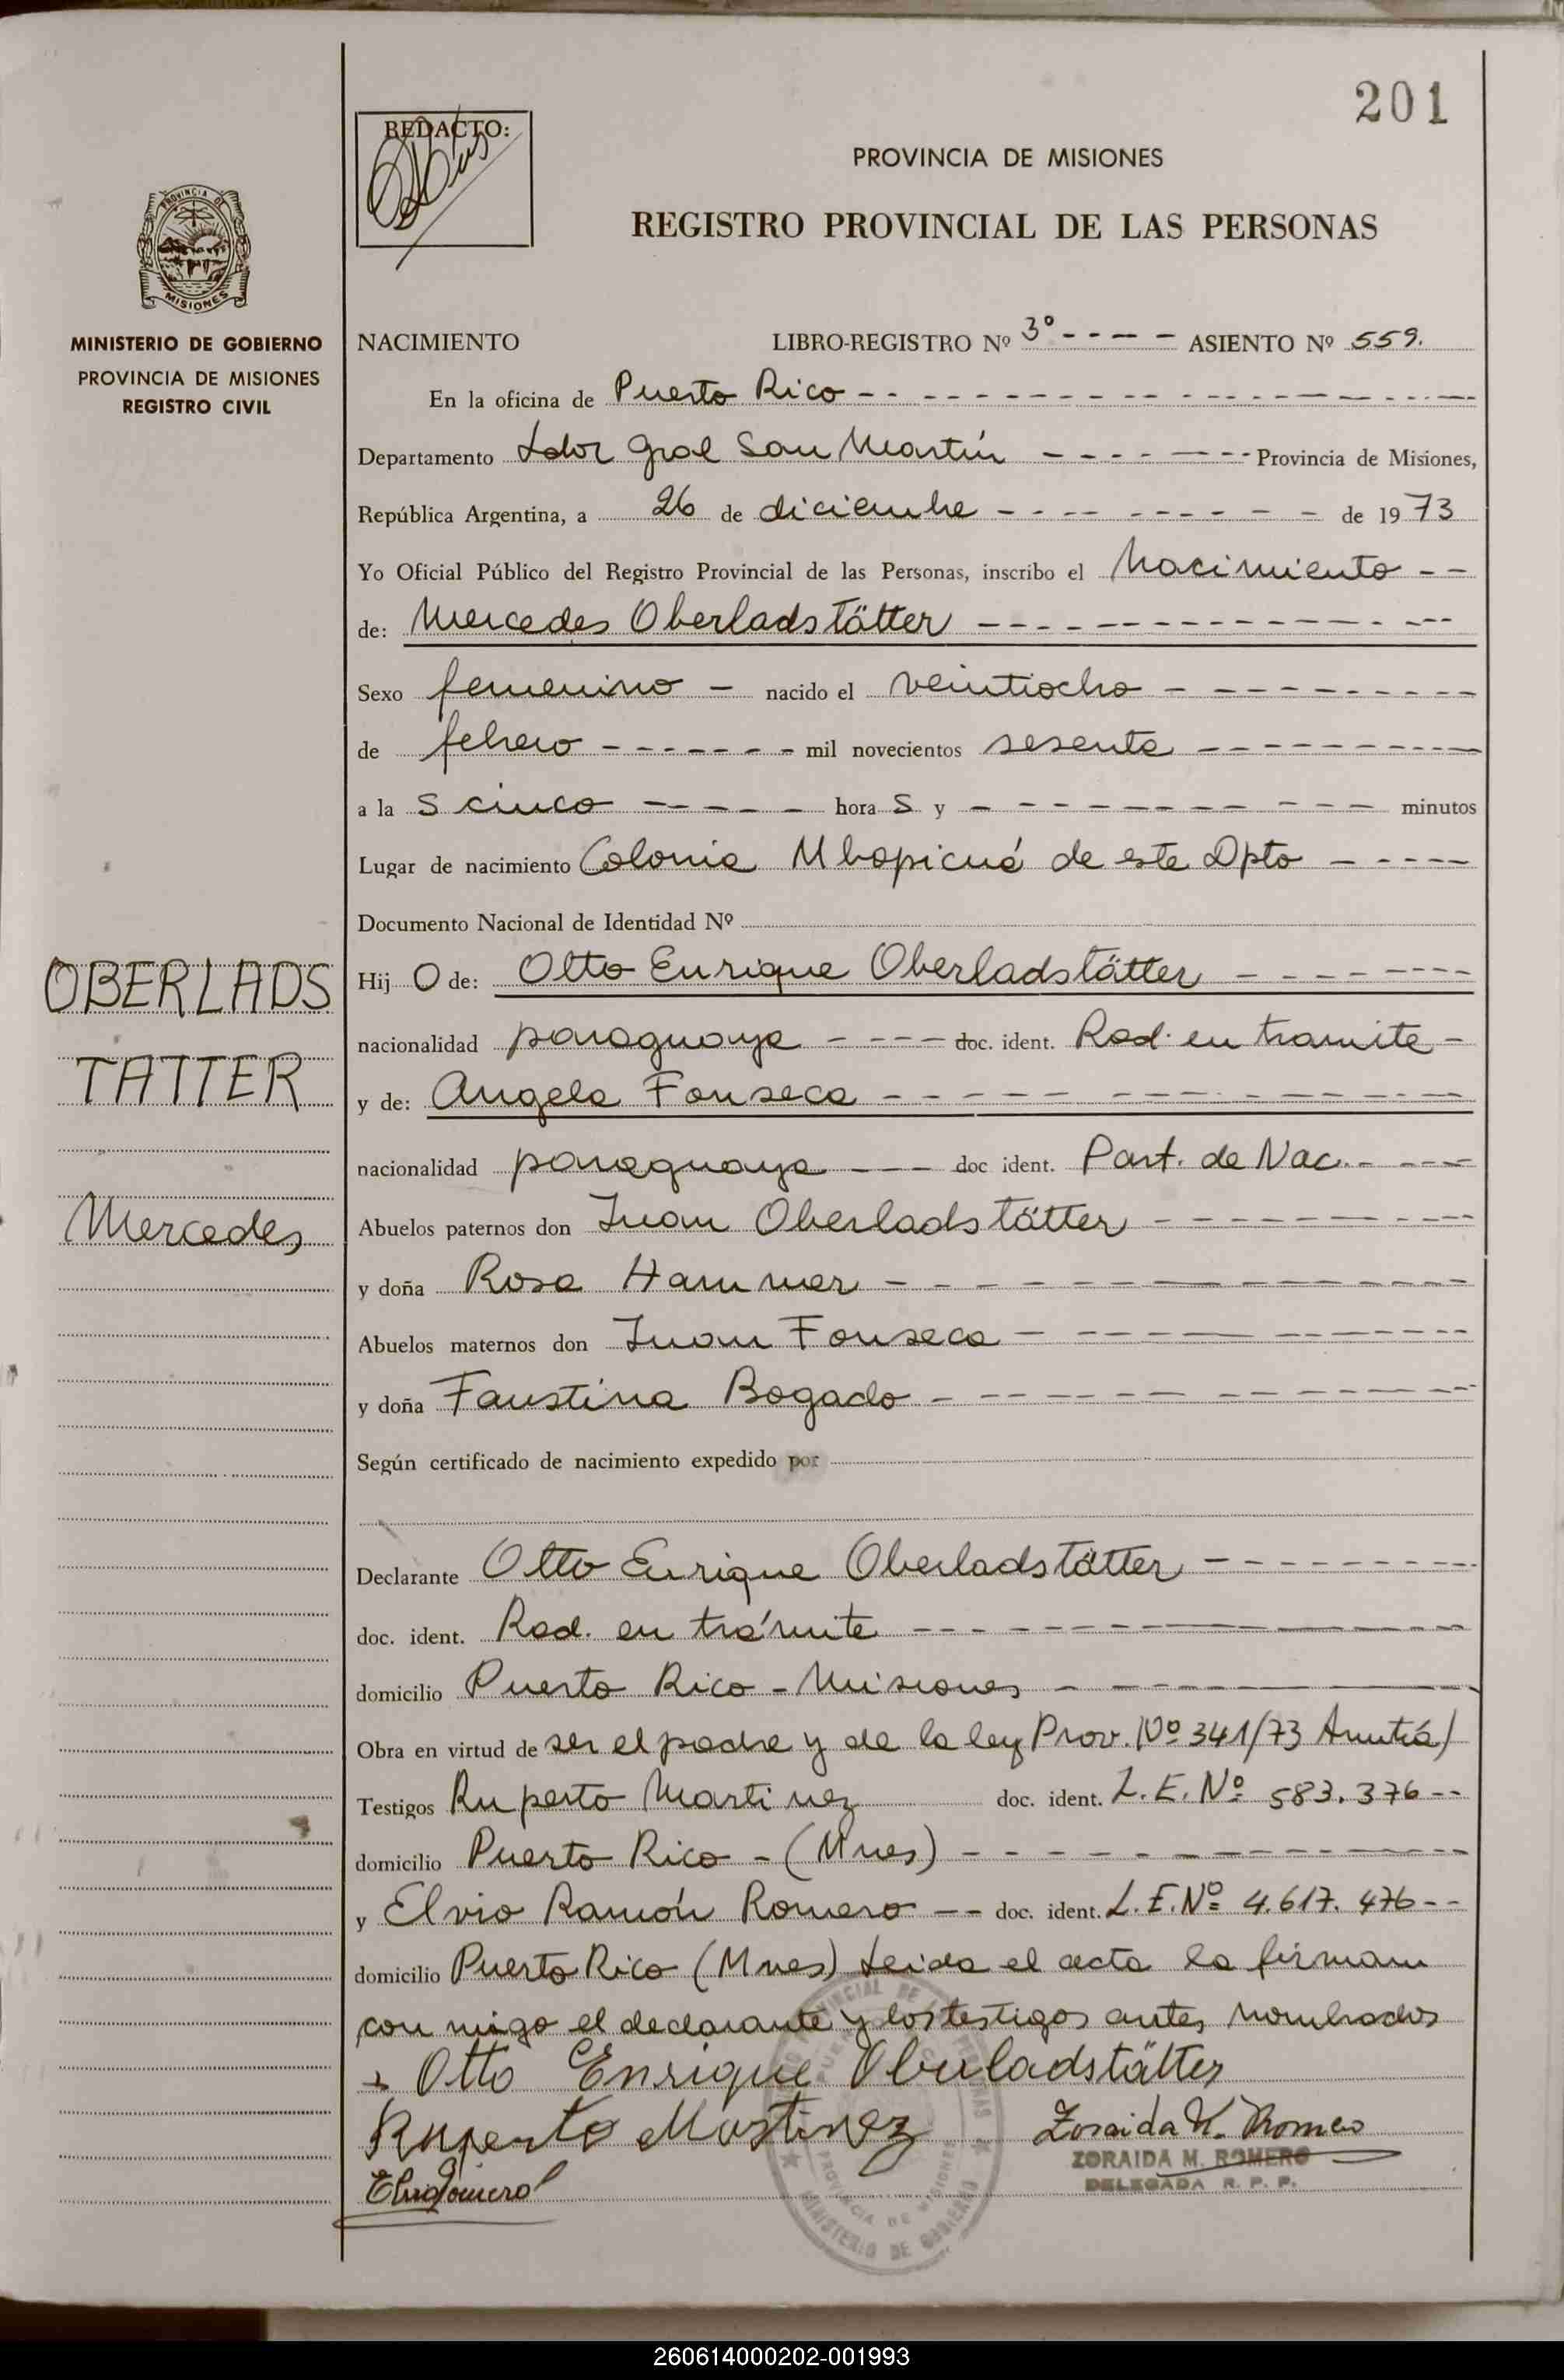 201
REDACTO:
PROVINCIA DE MISIONES
REGISTRO PROVINCIAL DE LAS PERSONAS
PROVINCIA DE
MISIONES
MINISTERIO DE GOBIERNO
PROVINCIA DE MISIONES
REGISTRO CIVIL
NACIMIENTO LIBRO-REGISTRO Nº 3º - - - - ASIENTO Nº 559.
En la oficina de Puerto Rico
Departamento Ldor Gral San Martín Provincia de Misiones,
República Argentina, a 26 de diciembre de 1973
Yo Oficial Público del Registro Provincial de las Personas, inscribo el Nacimiento
de: Mercedes Oberladstätter
Sexo femenino nacido el veintiocho
de febrero mil novecientos sesenta
a la s cinco hora s y minutos
Lugar de nacimiento Colonia Mbopicuá de este Dpto
Documento Nacional de Identidad Nº
OBERLADS
TATTER
Mercedes
Hij O de: Otto Enrique Oberladstätter
nacionalidad paraguaya doc. ident. Rad. en tramite
y de: Angela Fonseca
nacionalidad paraguaya doc ident. Part. de Nac.
Abuelos paternos don Juan Oberladstätter
y doña Rosa Hammer
Abuelos maternos don Juan Fonseca
y doña Faustina Bogado
Según certificado de nacimiento expedido por
Declarante Otto Enrique Oberladstätter
doc. ident. Rad. en trámite
domicilio Puerto Rico - Misiones
Obra en virtud de ser el padre y de la ley Prov. Nº 341/73 Amnía)
Testigos Ruperto Martinez doc. ident. L.E. Nº 583.376
domicilio Puerto Rico - (Mnes)
y Elvio Ramón Romero doc. ident. L.E. Nº 4.617.476
domicilio Puerto Rico (Mnes) Leida el acta la firman
con migo el declarante y los testigos antes nombrados
Otto Enrique Oberladstätter
Ruperto Martinez Zoraida M. Romero
ZORAIDA M. ROMERO
DELEGADA R. P. P.
PROVINCIA DE MISIONES
MINISTERIO DE GOBIERNO
260614000202-001993